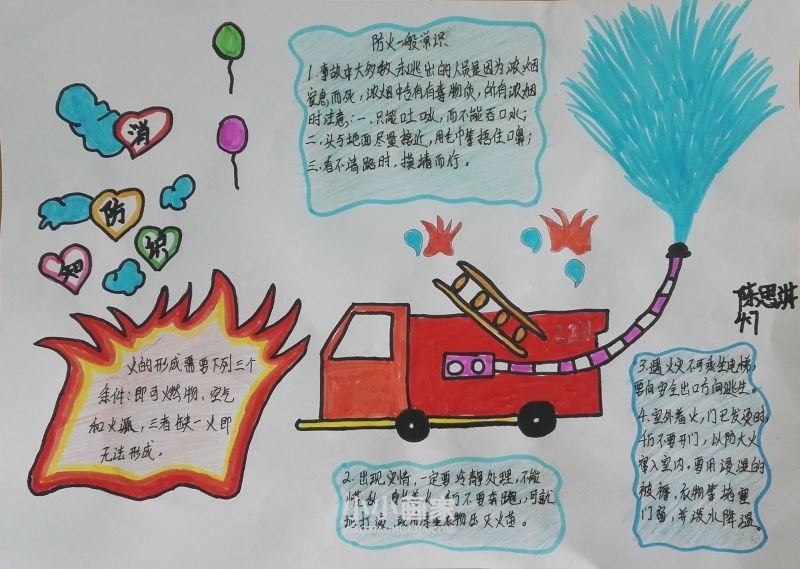 消
防
知
识
防火一般常识
1.事故中大多数未逃出的人员是因为浓烟
窒息而死,浓烟中含有有毒物质,所有浓烟
时注意:一.只能吐口水,而不能吞口水;
二.头与地面尽量接近,用毛巾等捂住口鼻;
三.看不清路时,摸墙而行。
火的形成需要下列三个
条件:即可燃物、空气
和火源,三者缺一火即
无法形成。
陈思淇
47
2.出现灾情,一定要冷静处理,不能
不要奔跑,可就
灭火苗。
3.遇火灾不可乘坐电梯,
要向安全出口方向逃生。
4.室外着火,门已发烫时,
切不要开门,以防大火
窜入室内。要用浸湿的
被褥、衣物等堵塞
门窗,并泼水降温。
小小画家
XIAOXIAOHUAJIA.COM